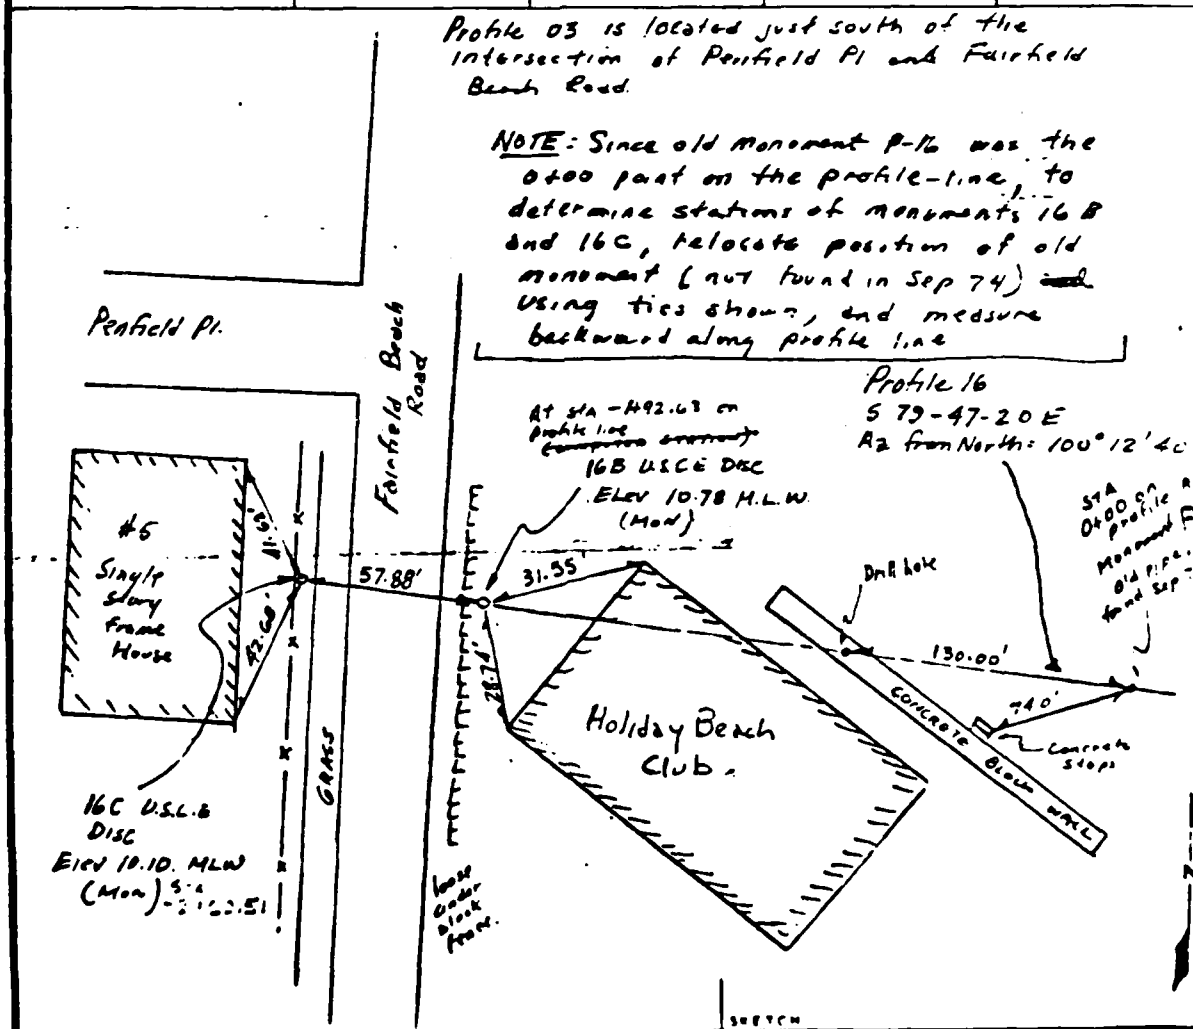 Profile 03 is located just south of the
intersection of Penfield Pl and Fairfield
Beach Road.
NOTE: Since old monument P-16 was the
0+00 point on the profile-line, to
determine stations of monuments 16B
and 16C, relocate position of old
monument (not found in Sep 74)
using ties shown, and measure
backward along profile line
Penfield Pl.
Fairfield Beach
Road
At sta -1+92.63 on
profile line
16B U.S.C.E DISC
Elev 10.78 M.L.W.
(Mon)
Profile 16
S 79-47-20 E
Az from North: 100° 12' 40
STA
0+00 on
profile
Monument
old pipe,
found Sep
#5
Single
story
Frame
House
42.68'
57.88'
31.55'
28.71'
Drill hole
130.00'
740'
Concrete
steps
CONCRETE BLOCK WALL
Holiday Beach
Club.
GRASS
16C U.S.C.E
DISC
Elev 10.10. MLW
(Mon)
loose
cinder
block
fence.
SKETCH